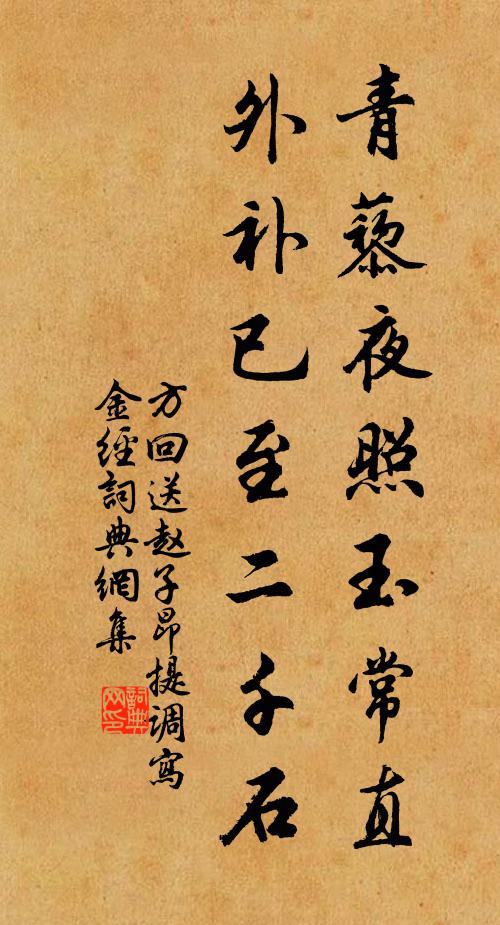 青藜夜照玉常直
外补已至二千石
方回送赵子昂提调写
金經詞典網集
詞典网印